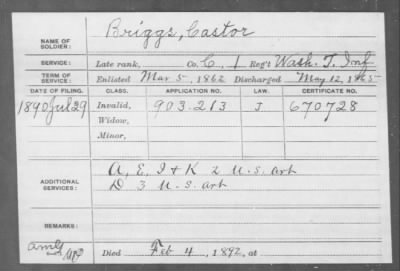 NAME OF SOLDIER: Briggs, Castor
SERVICE: Late rank, Co. C, 1 Reg't Wash. T. Inf
TERM OF SERVICE: Enlisted Mar 5, 1862 Discharged May 12, 1865
DATE OF FILING. CLASS. APPLICATION NO. LAW. CERTIFICATE NO.
1890 Jul 29 Invalid, 903.213 J 670728
Widow,
Minor,
ADDITIONAL SERVICES: A, E, I & K 2 U.S. art
D 3 U.S. art
REMARKS:
Died Feb 4, 1892, at